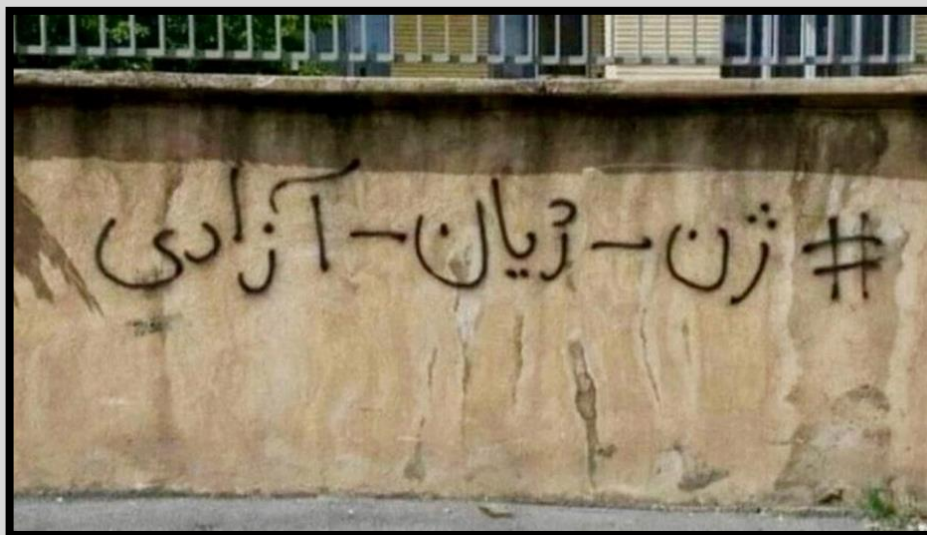 # ژن - ژیان - آزادی